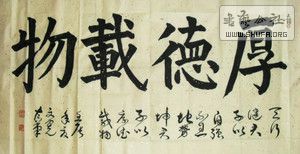 厚德載物
天行
健君
子以
自強
不息
地势
坤君
子以
厚德
載物
WWW.SHUFA.ORG